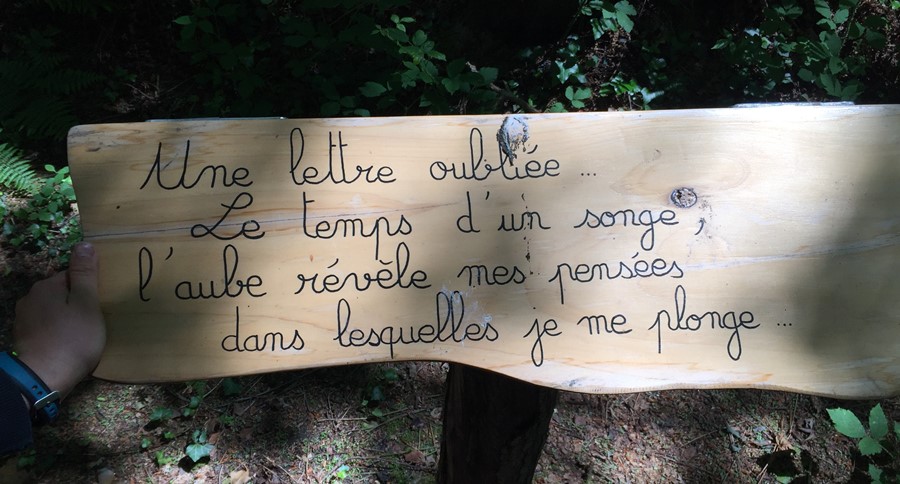 Une lettre oubliée ...
Le temps d'un songe,
l'aube révèle mes pensées
dans lesquelles je me plonge ...